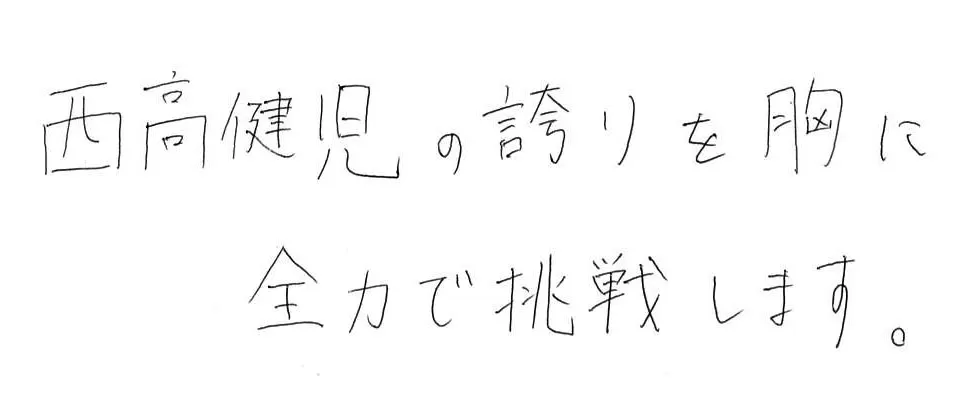 西高健児の誇りを胸に
全力で挑戦します。